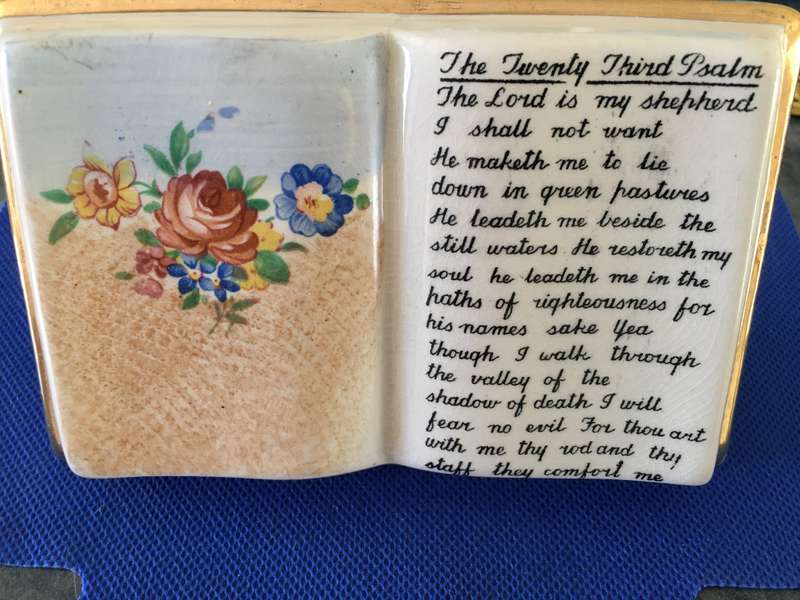 The Twenty Third Psalm
The Lord is my shepherd
I shall not want
He maketh me to lie
down in green pastures
He leadeth me beside the
still waters He restoreth my
soul he leadeth me in the
paths of righteousness for
his names sake Yea
though I walk through
the valley of the
shadow of death I will
fear no evil For thou art
with me thy rod and thy
staff they comfort me